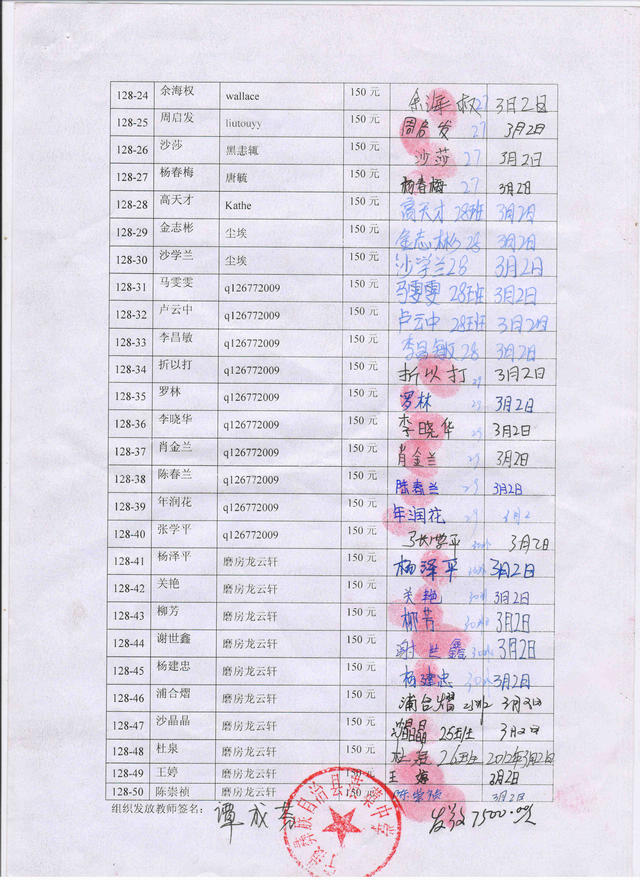 128-24 余海权 wallace 150 元 余海权 27 3月2日
128-25 周启发 liutouyy 150 元 周启发 27 3月2日
128-26 沙莎 黑志辄 150 元 沙莎 27 3月2日
128-27 杨春梅 唐毓 150 元 杨春梅 27 3月2日
128-28 高天才 Kathe 150 元 高天才 28班 3月2日
128-29 金志彬 尘埃 150 元 金志彬 28 3月2日
128-30 沙学兰 尘埃 150 元 沙学兰 28 3月2日
128-31 马雯雯 q126772009 150 元 马雯雯 28班 3月2日
128-32 卢云中 q126772009 150 元 卢云中 28班 3月2日
128-33 李昌敏 q126772009 150 元 李昌敏 28 3月2日
128-34 折以打 q126772009 150 元 折以打 29 3月2日
128-35 罗林 q126772009 150 元 罗林 29 3月2日
128-36 李晓华 q126772009 150 元 李晓华 29 3月2日
128-37 肖金兰 q126772009 150 元 肖金兰 29 3月2日
128-38 陈春兰 q126772009 150 元 陈春兰 29 3月2日
128-39 年润花 q126772009 150 元 年润花 29 3月2
128-40 张学平 q126772009 150 元 张学平 3月2日
128-41 杨泽平 磨房龙云轩 150 元 杨泽平 3月2日
128-42 关艳 磨房龙云轩 150 元 关艳 3月2日
128-43 柳芳 磨房龙云轩 150 元 柳芳 3月2日
128-44 谢世鑫 磨房龙云轩 150 元 谢世鑫 3月2日
128-45 杨建忠 磨房龙云轩 150 元 杨建忠 3月2日
128-46 浦合熠 磨房龙云轩 150 元 浦合熠 3月2日
128-47 沙晶晶 磨房龙云轩 150 元 晶晶 25班 3月2日
128-48 杜泉 磨房龙云轩 150 元 杜泉 26班 2012年3月2日
128-49 王婷 磨房龙云轩 150元 王婷 2月2日
128-50 陈崇祯 磨房龙云轩 150元 陈崇祯 3月2日
组织发放教师签名： 谭成 发放7500.00元
族自治县 中学